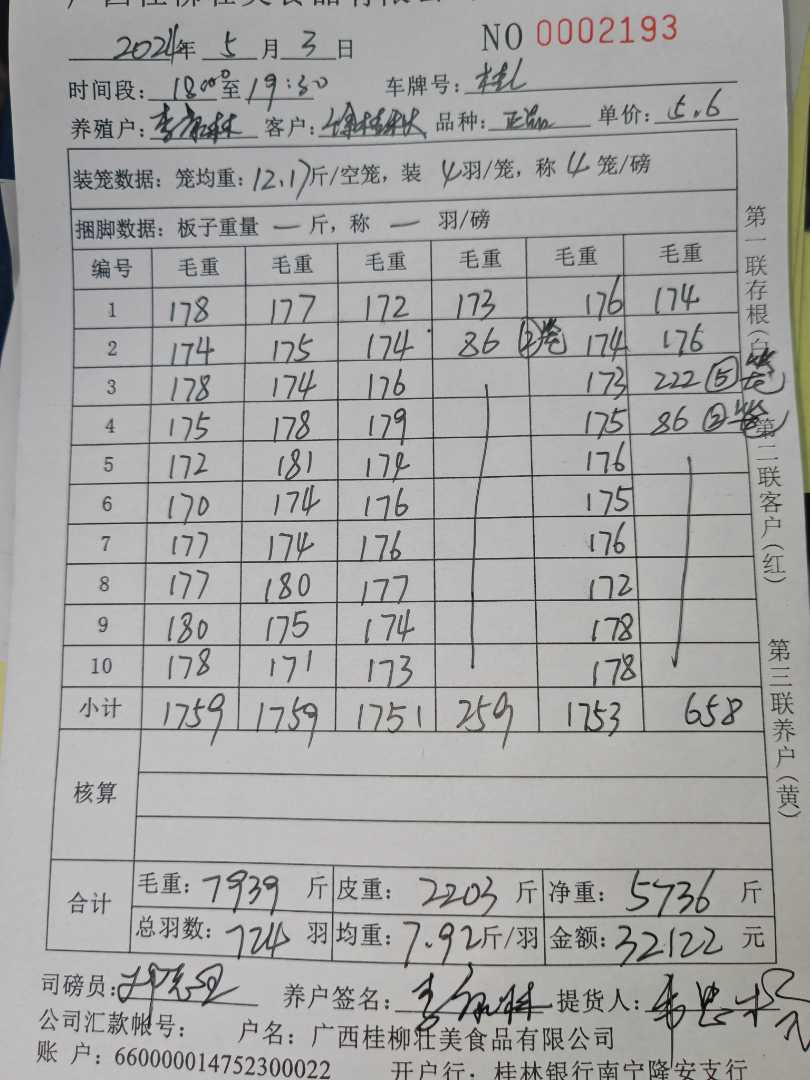 2024年 5 月 3 日 NO 0002193
时间段: 18:00至 19:30 车牌号: 桂
养殖户: 客户: 徐桂秋 品种: 正品 单价: 5.6
装笼数据: 笼均重: 12.17斤/空笼, 装 4羽/笼, 称 4 笼/磅
捆脚数据: 板子重量 一 斤, 称 一 羽/磅
编号 毛重 毛重 毛重 毛重 毛重 毛重
1 178 177 172 173 176 174
2 174 175 174 86 ②笼 174 176
3 178 174 176 173 222 ⑤笼
4 175 178 179 175 86 ②笼
5 172 181 174 176
6 170 174 176 175
7 177 174 176 176
8 177 180 177 172
9 180 175 174 178
10 178 171 173 178
小计 1759 1759 1751 259 1753 658
核算
合计 毛重: 7939 斤 皮重: 2203 斤 净重: 5736 斤
总羽数: 724 羽 均重: 7.92斤/羽 金额: 32122 元
司磅员: 养户签名: 提货人:
公司汇款帐号: 户名: 广西桂柳壮美食品有限公司
账 户: 660000014752300022 开户行: 桂林银行南宁隆安支行
第一联存根(白
第二联客户(红)
第三联养户(黄)